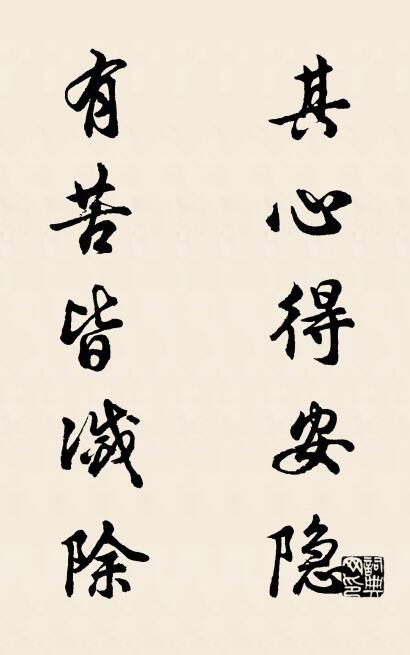 其心得安隐
有苦皆滅除